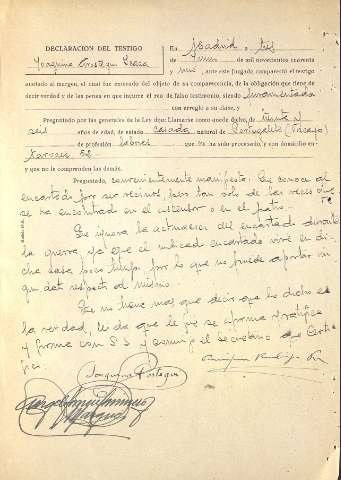 DECLARACION DEL TESTIGO
En Madrid a tres
Joaquina
de de mil novecientos cuarenta
y , ante este Juzgado compareció el testigo
anotado al margen, el cual fue enterado del objeto de su comparecencia, de la obligación que tiene de
decir verdad y de las penas en que incurre el reo de falso testimonio, siendo juramentada
con arreglo a su clase, y
Preguntado por las generales de la Ley dijo: Llamarse como queda dicho, de treinta y
seis años de edad, de estado casada natural de Portugalete (Vizcaya)
de profesión labores que no ha sido procesado, y con domicilio en
52
y que no le comprenden las demás.
Preguntado, convenientemente manifiesta: Que conoce al
encartado por ser vecinos, pero tan solo de las veces que
se ha encontrado en el ascensor o en el patio.
Que ignora la actuación del encartado durante
la guerra, ya que el indicado encartado vive en di-
cha casa poco tiempo por lo que no puede aportar nin
gun dato respecto al mismo.
Que no tiene mas que decir que lo dicho es
la verdad, leida que le fue se afirma y ratifica
y firma con S.S. y conmigo el Secretario que Certi
fico.
Joaquina